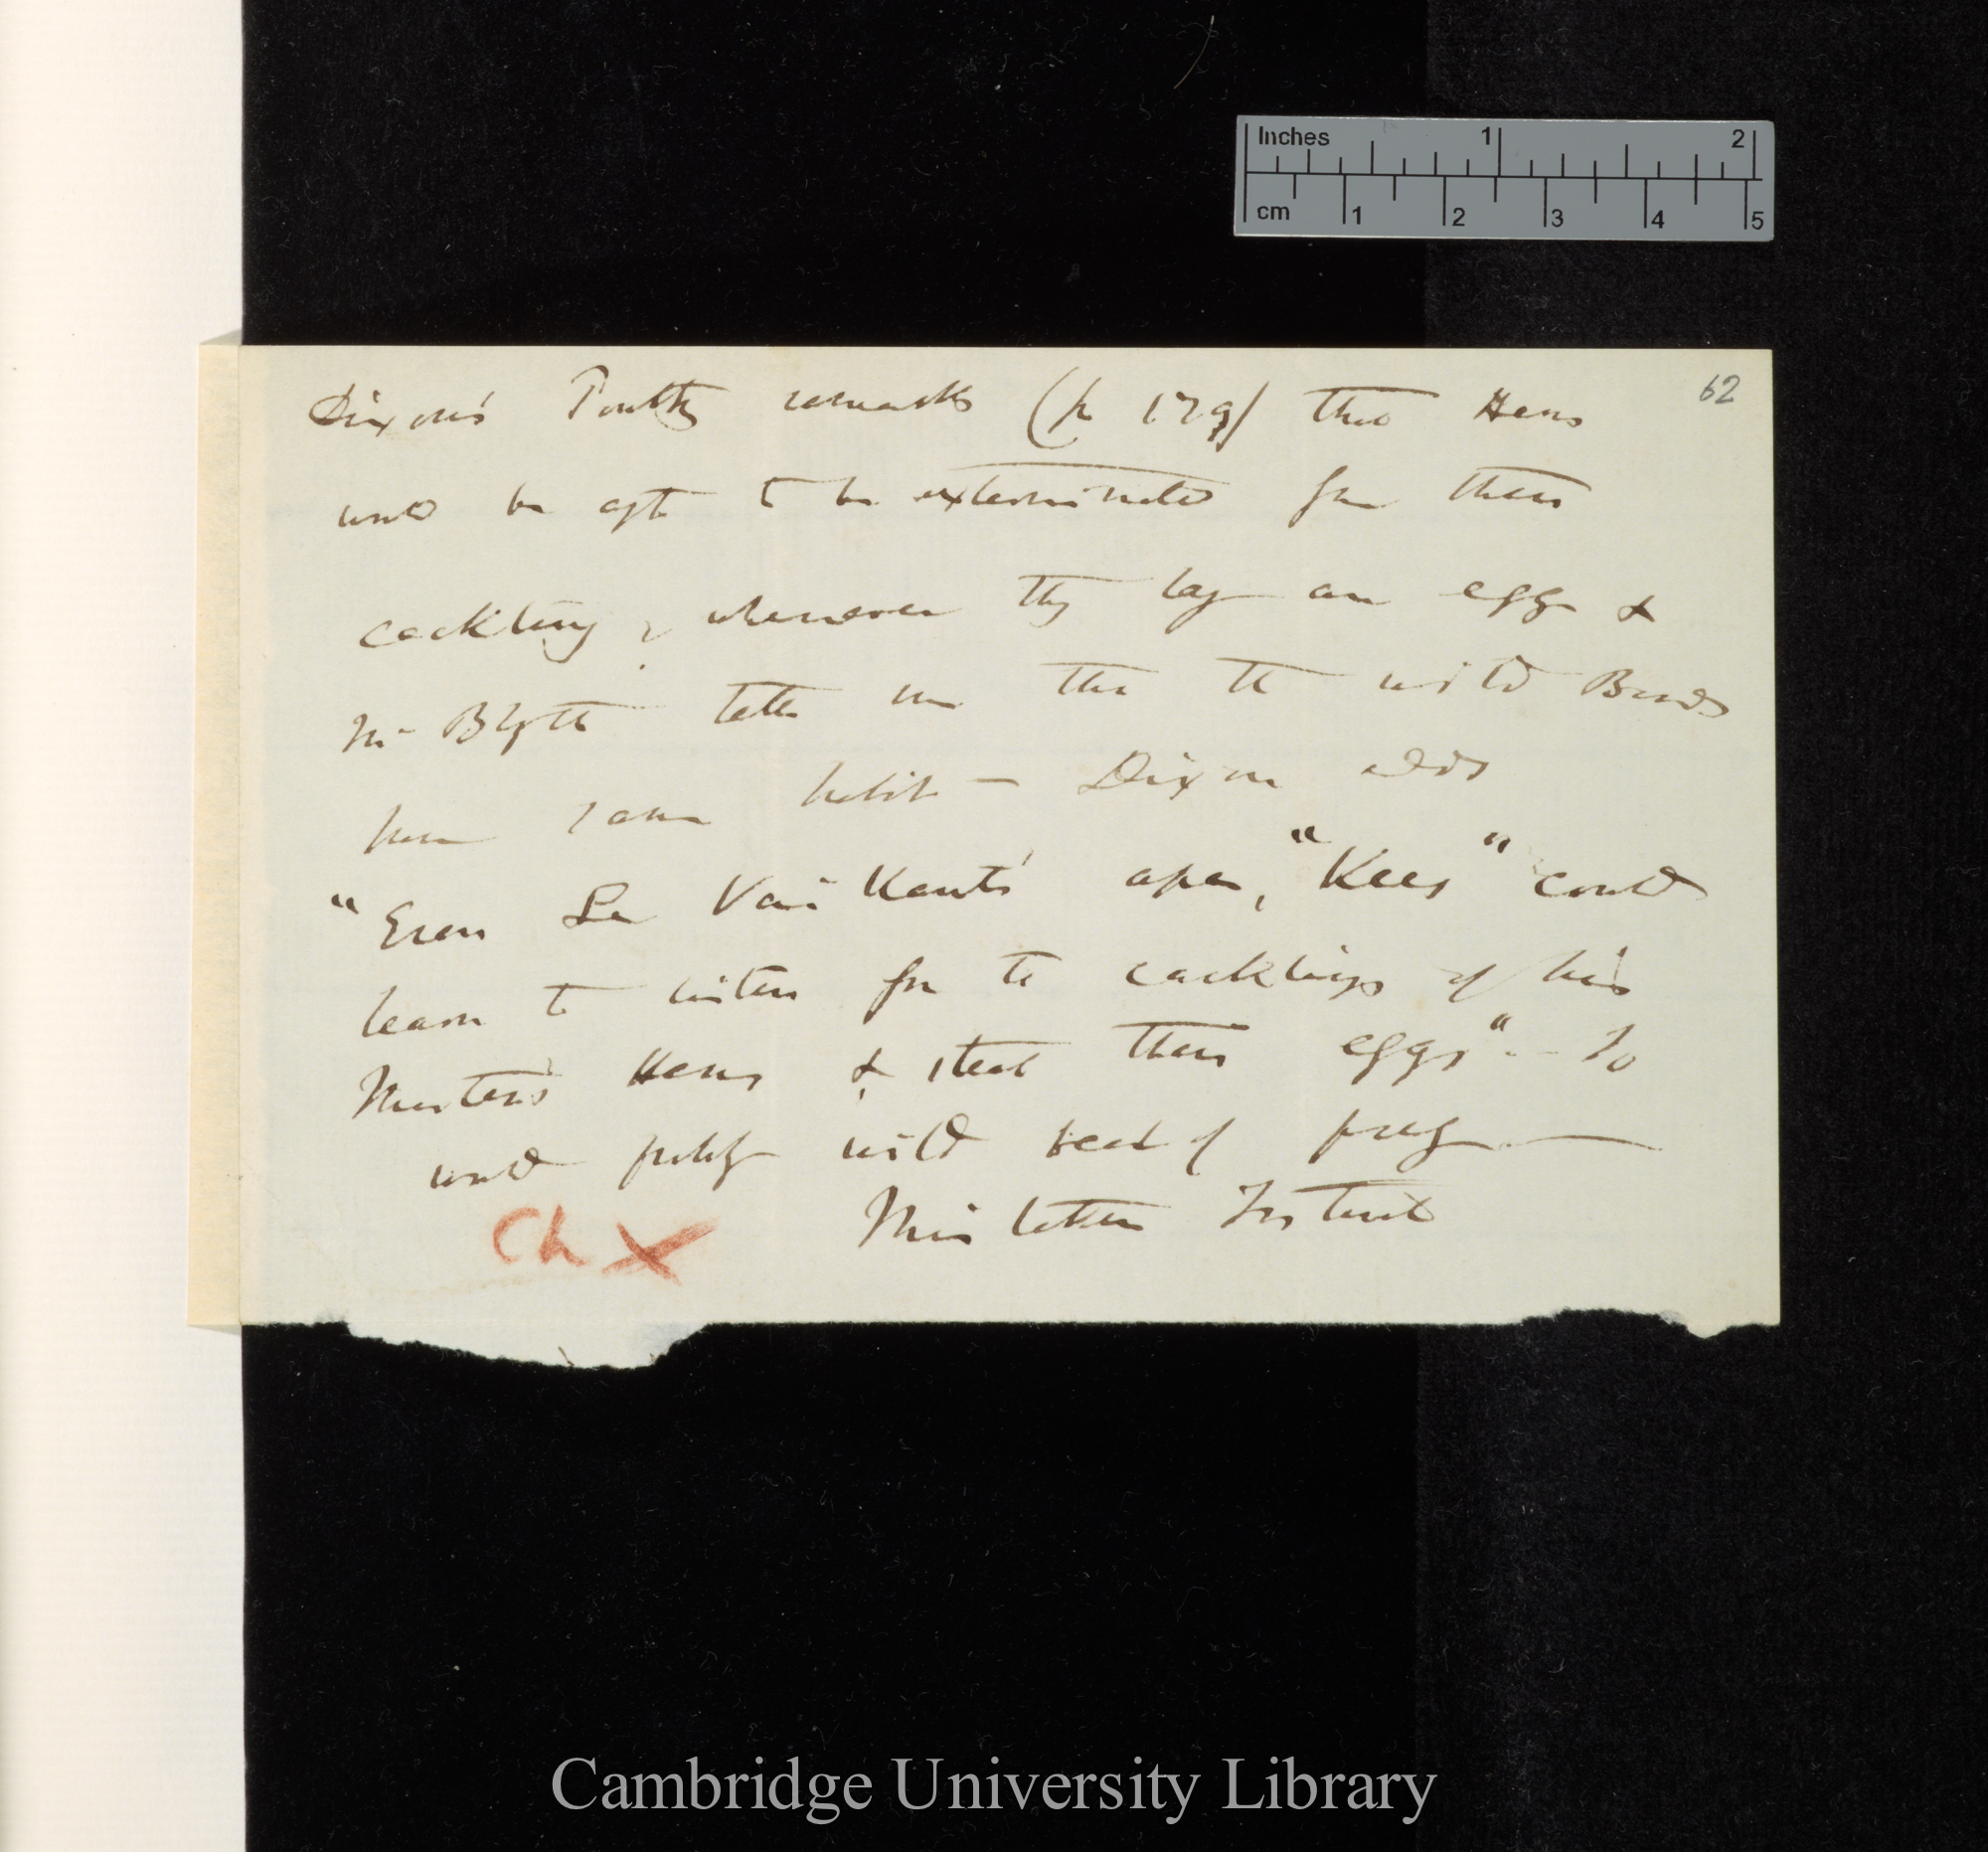 Inches 1 2
cm 1 2 3 4 5
62
Dixon's Poultry remarks (p 179) that Hens
would be apt to be exterminated from their
cackling, whenever they lay an egg &
Mr Blyth tells me that the wild Birds
have same habit — Dixon adds
"Even Le Vaillant's ape, "Kees" could
learn to listen for the cacklings of his
Master's Hens & steal their eggs". — So
would wild beast of prey —
Ch X
Instinct
Cambridge University Library